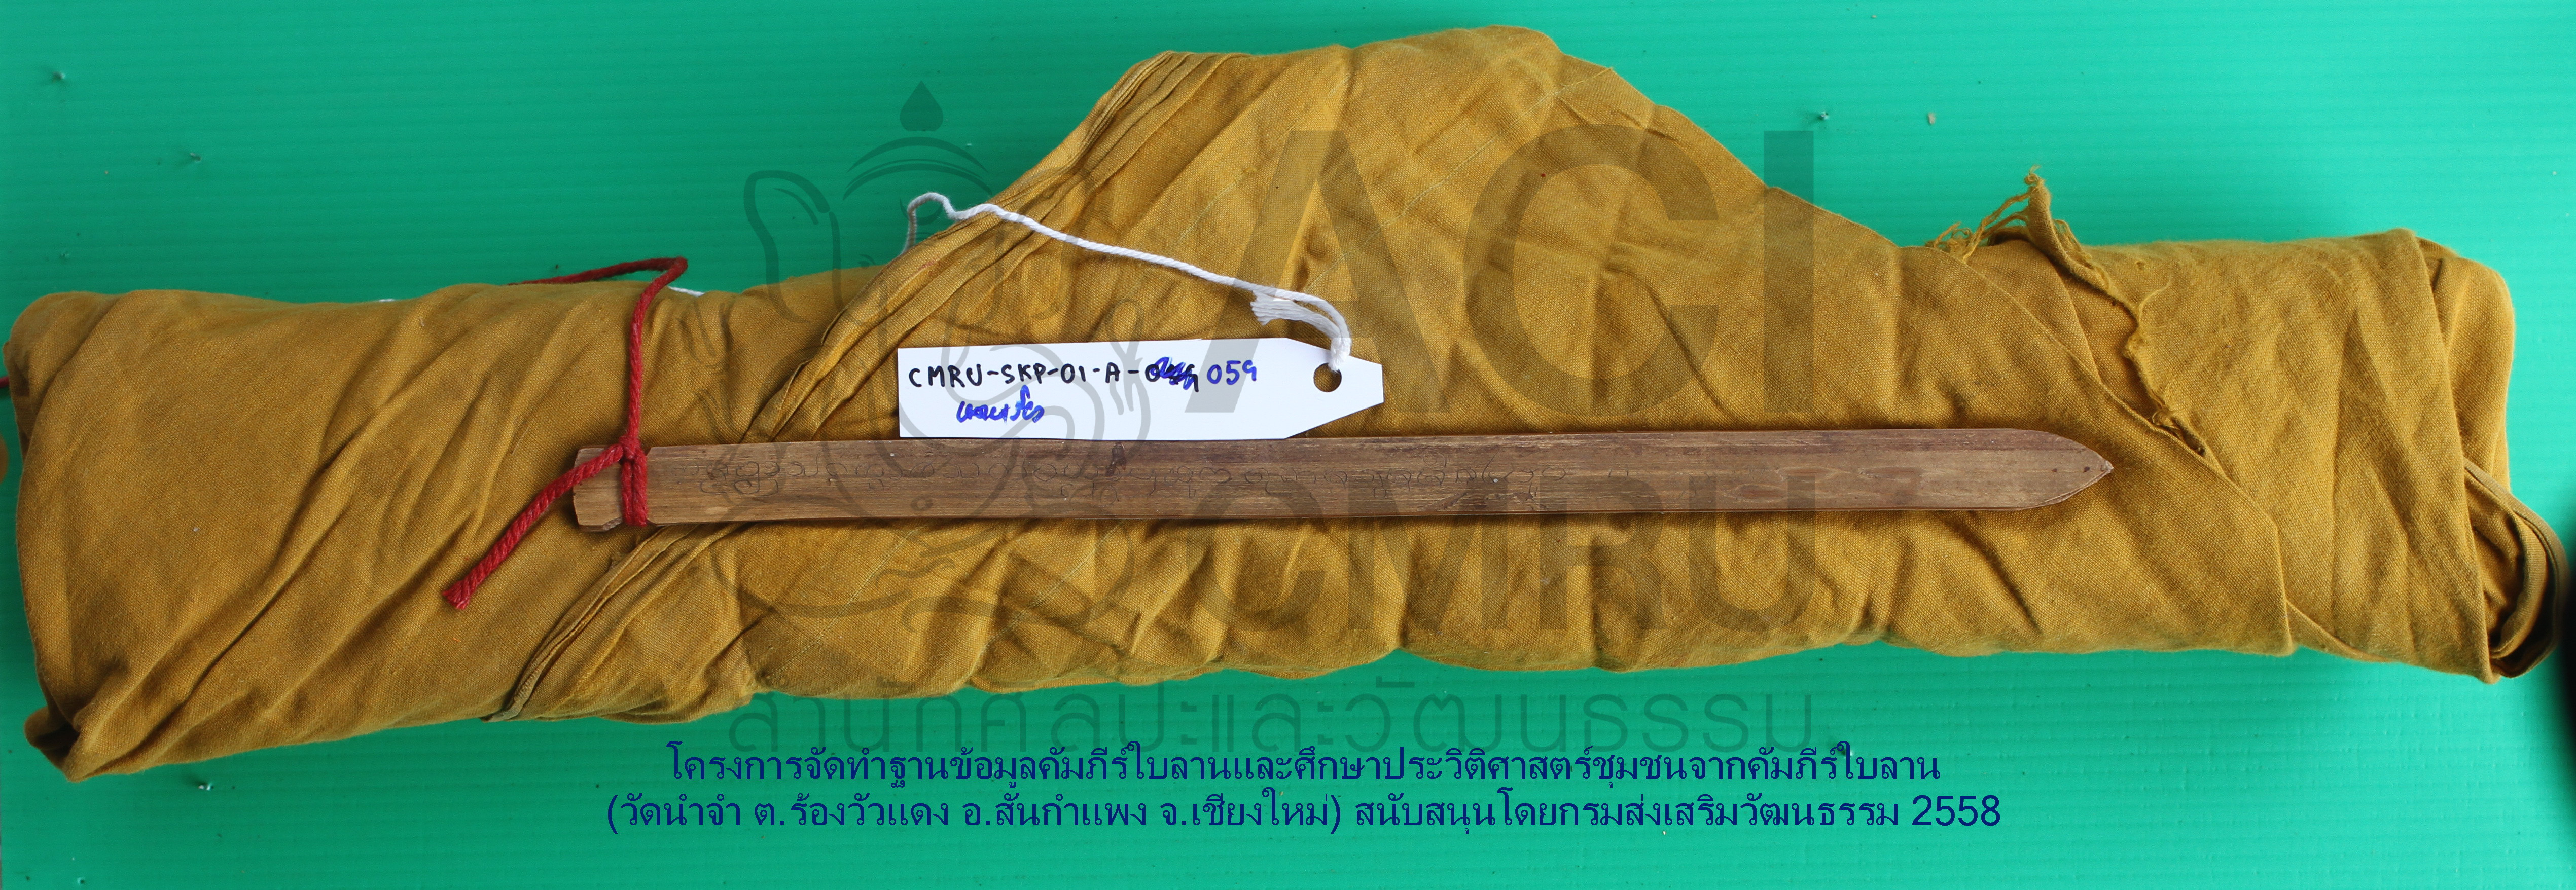 ACI
CMRU-SKP-01-A- 059
CMRU
สำนักศิลปะและวัฒนธรรม
โครงการจัดทำฐานข้อมูลคัมภีร์ใบลานและศึกษาประวัติศาสตร์ชุมชนจากคัมภีร์ใบลาน
(วัดน้ำจำ ต.ร้องวัวแดง อ.สันกำแพง จ.เชียงใหม่) สนับสนุนโดยกรมส่งเสริมวัฒนธรรม 2558